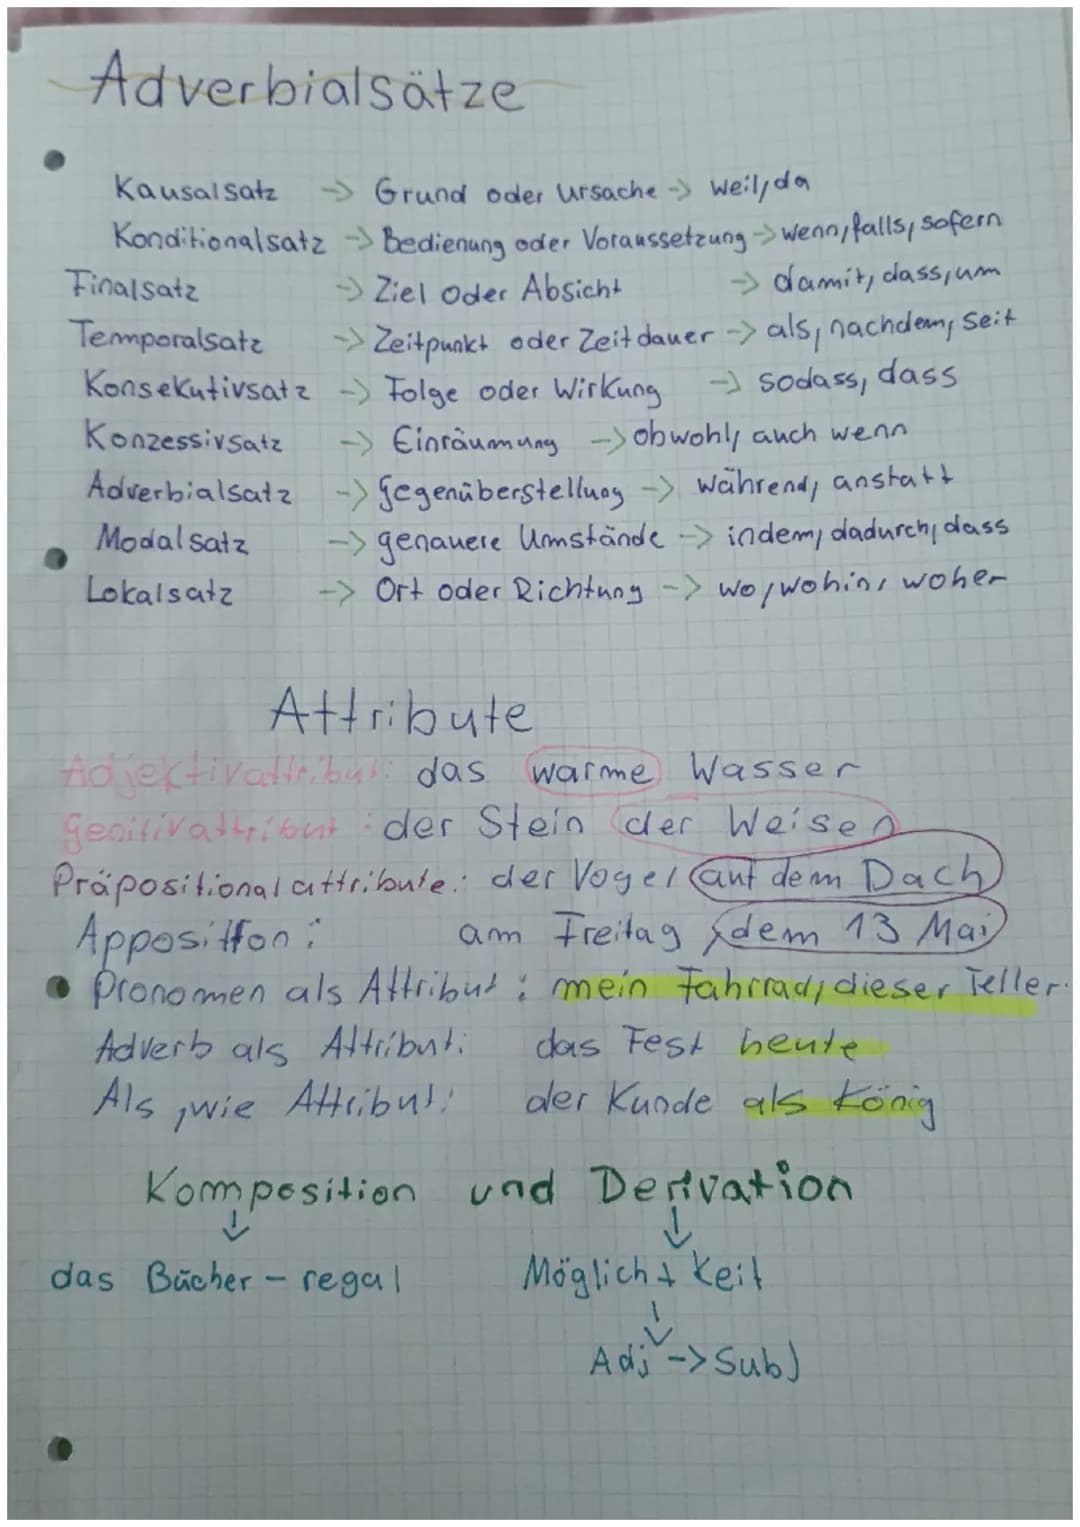 Adverbialsätze
Kausalsatz -> Grund oder Ursache -> weil, da
Konditionalsatz -> Bedienung oder Voraussetzung -> wenn, falls, sofern
Finalsatz -> Ziel oder Absicht -> damit, dass, um
Temporalsatz -> Zeitpunkt oder Zeitdauer -> als, nachdem, seit
Konsekutivsatz -> Folge oder Wirkung -> sodass, dass
Konzessivsatz -> Einräumung -> obwohl, auch wenn
Adverbialsatz -> gegenüberstellung -> während, anstatt
Modalsatz -> genauere Umstände -> indem, dadurch, dass
Lokalsatz -> Ort oder Richtung -> wo, wohin, woher
Attribute
Adjektivattribut: das warme Wasser
Genitivattribut: der Stein der Weisen
Präpositionalattribute: der Vogel auf dem Dach
Apposition: am Freitag, dem 13 Mai
Pronomen als Attribut: mein Fahrrad, dieser Teller.
Adverb als Attribut: das Fest heute
Als, wie Attribut: der Kunde als König
Komposition und Derivation
das Bücher - regal Möglich + Keit
Adj -> Subj